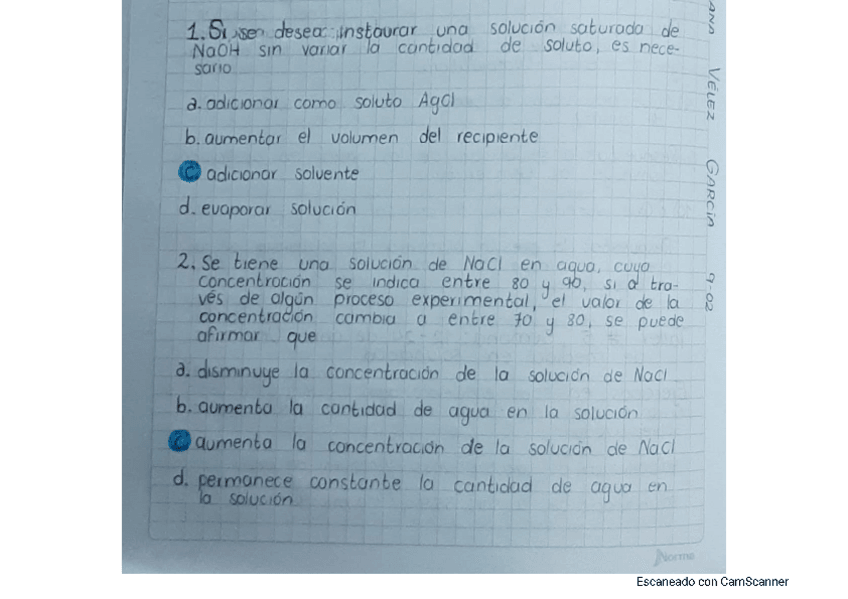 1. Si se desea instaurar una solución saturada de
NaOH sin variar la cantidad de soluto, es nece-
sario
a. adicionar como soluto AgCl
b. aumentar el volumen del recipiente
c adicionar solvente
d. evaporar solución
2. Se tiene una solución de NaCl en agua, cuya
concentración se indica entre 80 y 90, si a tra-
vés de algún proceso experimental, el valor de la
concentración cambia a entre 70 y 80, se puede
afirmar que
a. disminuye la concentración de la solución de NaCl
b. aumenta la cantidad de agua en la solución
c aumenta la concentración de la solución de NaCl
d. permanece constante la cantidad de agua en
la solución
VÉLEZ GARCIA 9-02
Norma
Escaneado con CamScanner